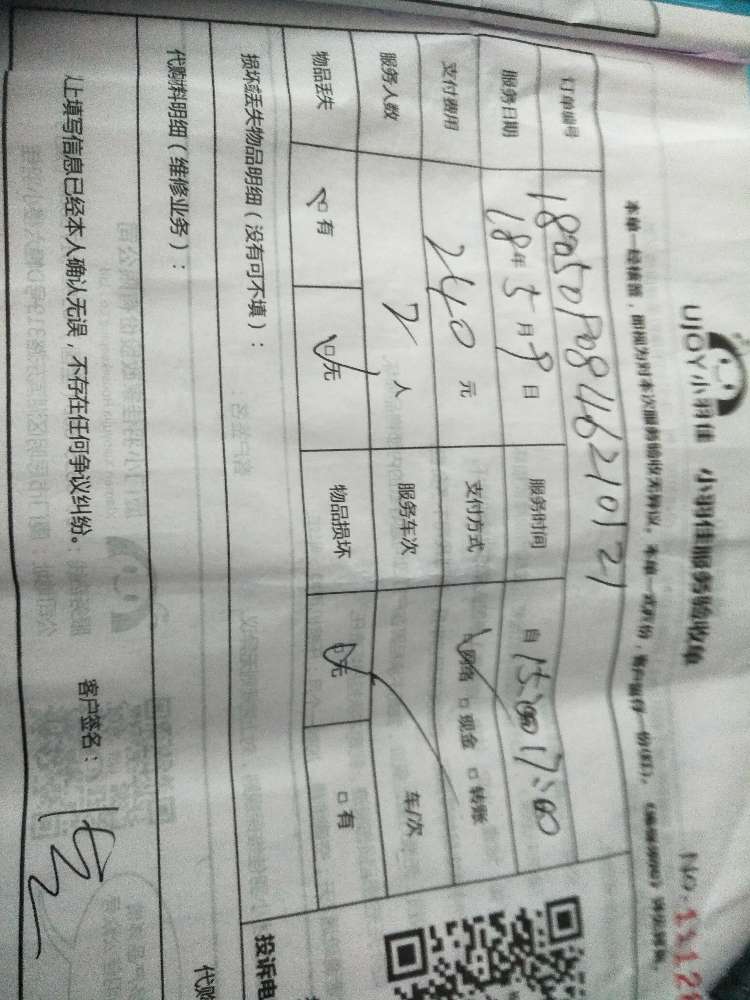 UJOY小羽佳 小羽佳服务验收单 NO:
本单一经核签，即视为对本次服务验收无异议。本单一式两份，客户留存一份(红)。
订单编号 1805090846210121
服务日期 18年5月9日 服务时间 自15:00 17:00
支付费用 240元 支付方式 □网络 □现金 □转账
服务人数 2人 服务车次 车/次
物品丢失 □有 □无 物品损坏 □无 □有
损坏丢失物品明细（没有可不填）：
投诉电
代购料明细（维修业务）：
代购
以上填写信息已经本人确认无误，不存在任何争议纠纷。 客户签名：